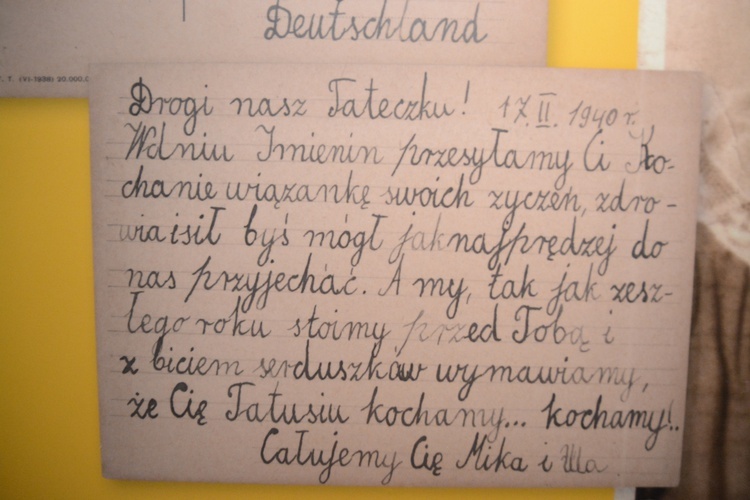 Deutschland
T. (VI-1938) 20.000.0
Drogi nasz Tateczku! 17.II.1940 r.
Wdniu Imienin przesyłamy Ci Ko-
chanie wiązankę swoich zyczeń, zdro-
wia i sił byś mógł jaknajprędzej do
nas przyjechać. A my, tak jak zesz-
łego roku stoimy przed Tobą i
z biciem serduszków wymawiamy,
że Cię Tatusiu kochamy... kochamy!..
Całujemy Cię Mika i Ula